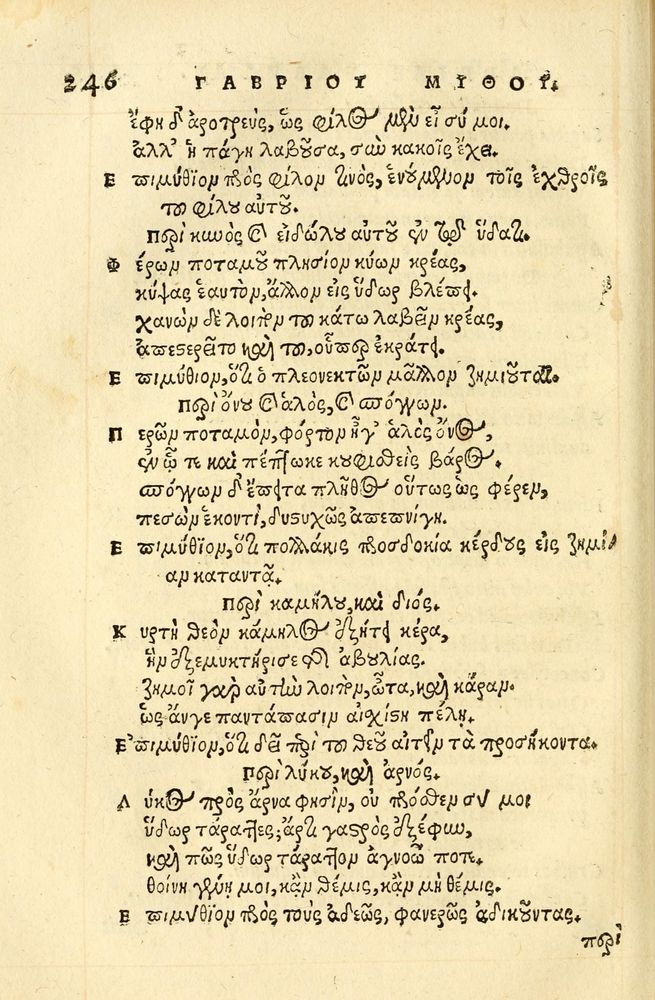 246 ΓΑΒΡΙΟΥ ΜΥΘΟΙ.
ἔφη δ' ἀροτρεύς, ὡς φίλος μὲν εἶ σύ μοι.
ἀλλ' ἡ πάγη λαβοῦσα, σὺν κακοῖς ἔχει.
Ἐπιμύθιον πρὸς φίλον τινὸς, ἑνούμενον τοῖς ἐχθροῖς
τοῦ φίλου αὐτοῦ.
Περὶ κυνὸς καὶ εἰδώλου αὐτοῦ ἐν τῷ ὕδατι.
Φέρων ποταμοῦ πλησίον κύων κρέας,
κύψας ἑαυτὸν, ἄλλον εἰς ὕδωρ βλέπει.
χανὼν δὲ λοιπὸν τοῦ κάτω λαβεῖν κρέας,
ἀπεστερεῖτο καὶ τοῦ, οὗπερ ἐκράτει.
Ἐπιμύθιον, ὅτι ὁ πλεονεκτῶν μᾶλλον ζημιοῦται.
Περὶ ὄνου καὶ ἁλὸς, καὶ σπόγγων.
Περῶν ποταμὸν, φόρτον ἦγ' ἁλὸς ὄνος,
ἐν ᾧ τι καὶ πέπτωκε κουφισθεὶς βάρος.
σπόγγων δ' ἔπειτα πλῆθος οὕτως ὡς φέρεν,
πεσὼν ἑκοντὶ, δυστυχῶς ἀπεπνίγη.
Ἐπιμύθιον, ὅτι πολλάκις προσδοκία κέρδους εἰς ζημί
αν καταντᾷ.
Περὶ καμήλου, καὶ διός.
Κυρτὴ θεὸν κάμηλος ἐζήτει κέρα,
ἣν ἐξεμυκτήρισε τῆς ἀβουλίας.
ζημοῖ γὰρ αὐτὴν λοιπὸν, ὦτα, καὶ κάραν.
ὡς ἄνγε παντάπασιν αἰχίστη πέλῃ.
Ἐπιμύθιον, ὅτι δεῖ περὶ τοῦ θεοῦ αἰτεῖν τὰ προσήκοντα.
Περὶ λύκου, καὶ ἀρνός.
Λύκος πρὸς ἄρνα φησὶν, οὐ πρόσθεν σύ μοι
ὕδωρ τάραττες; ἄρτι γαστρὸς ἐξέφυν,
καὶ πῶς ὕδωρ τάραττον ἀγνοῶ ποτι.
θοίνη γενῇ μοι, κἂν θέμις, κἂν μὴ θέμις.
Ἐπιμύθιον πρὸς τοὺς ἀδεῶς, φανερῶς ἀδικοῦντας.
περὶ